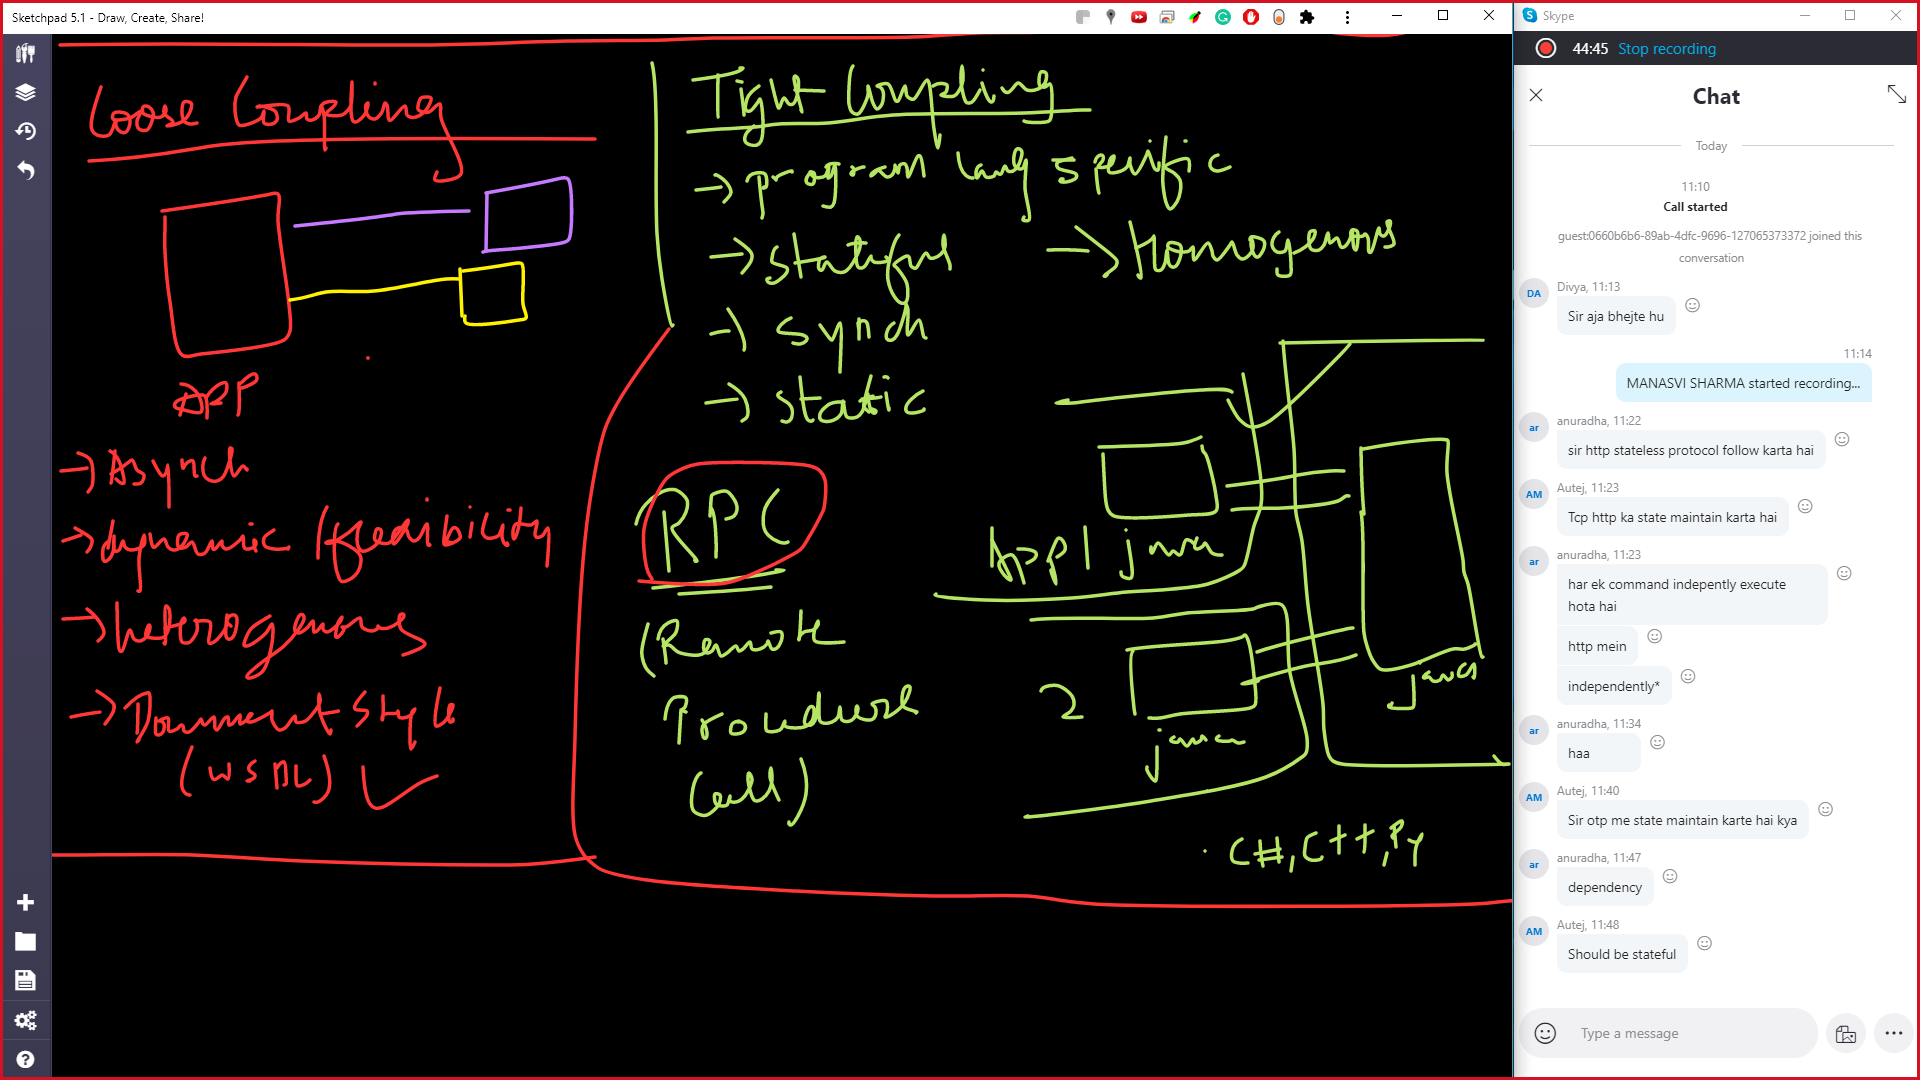 Sketchpad 5.1 - Draw, Create, Share!
Loose Coupling
APP
→ Asynch
→ dynamic / flexibility
→ heterogenous
→ Document Style
(WSDL) ✓
Tight Coupling
→ program lang specific
→ stateful → Homogenous
→ synch
→ static
RPC
(Remote
Procedure
Call)
App1 java
2
java
java
C#, C++, Py
Skype
44:45 Stop recording
Chat
Today
11:10
Call started
guest:0660b6b6-89ab-4dfc-9696-127065373372 joined this
conversation
DA
Divya, 11:13
Sir aja bhejte hu
11:14
MANASVI SHARMA started recording...
ar
anuradha, 11:22
sir http stateless protocol follow karta hai
AM
Autej, 11:23
Tcp http ka state maintain karta hai
ar
anuradha, 11:23
har ek command indepently execute
hota hai
http mein
independently*
ar
anuradha, 11:34
haa
AM
Autej, 11:40
Sir otp me state maintain karte hai kya
ar
anuradha, 11:47
dependency
AM
Autej, 11:48
Should be stateful
Type a message